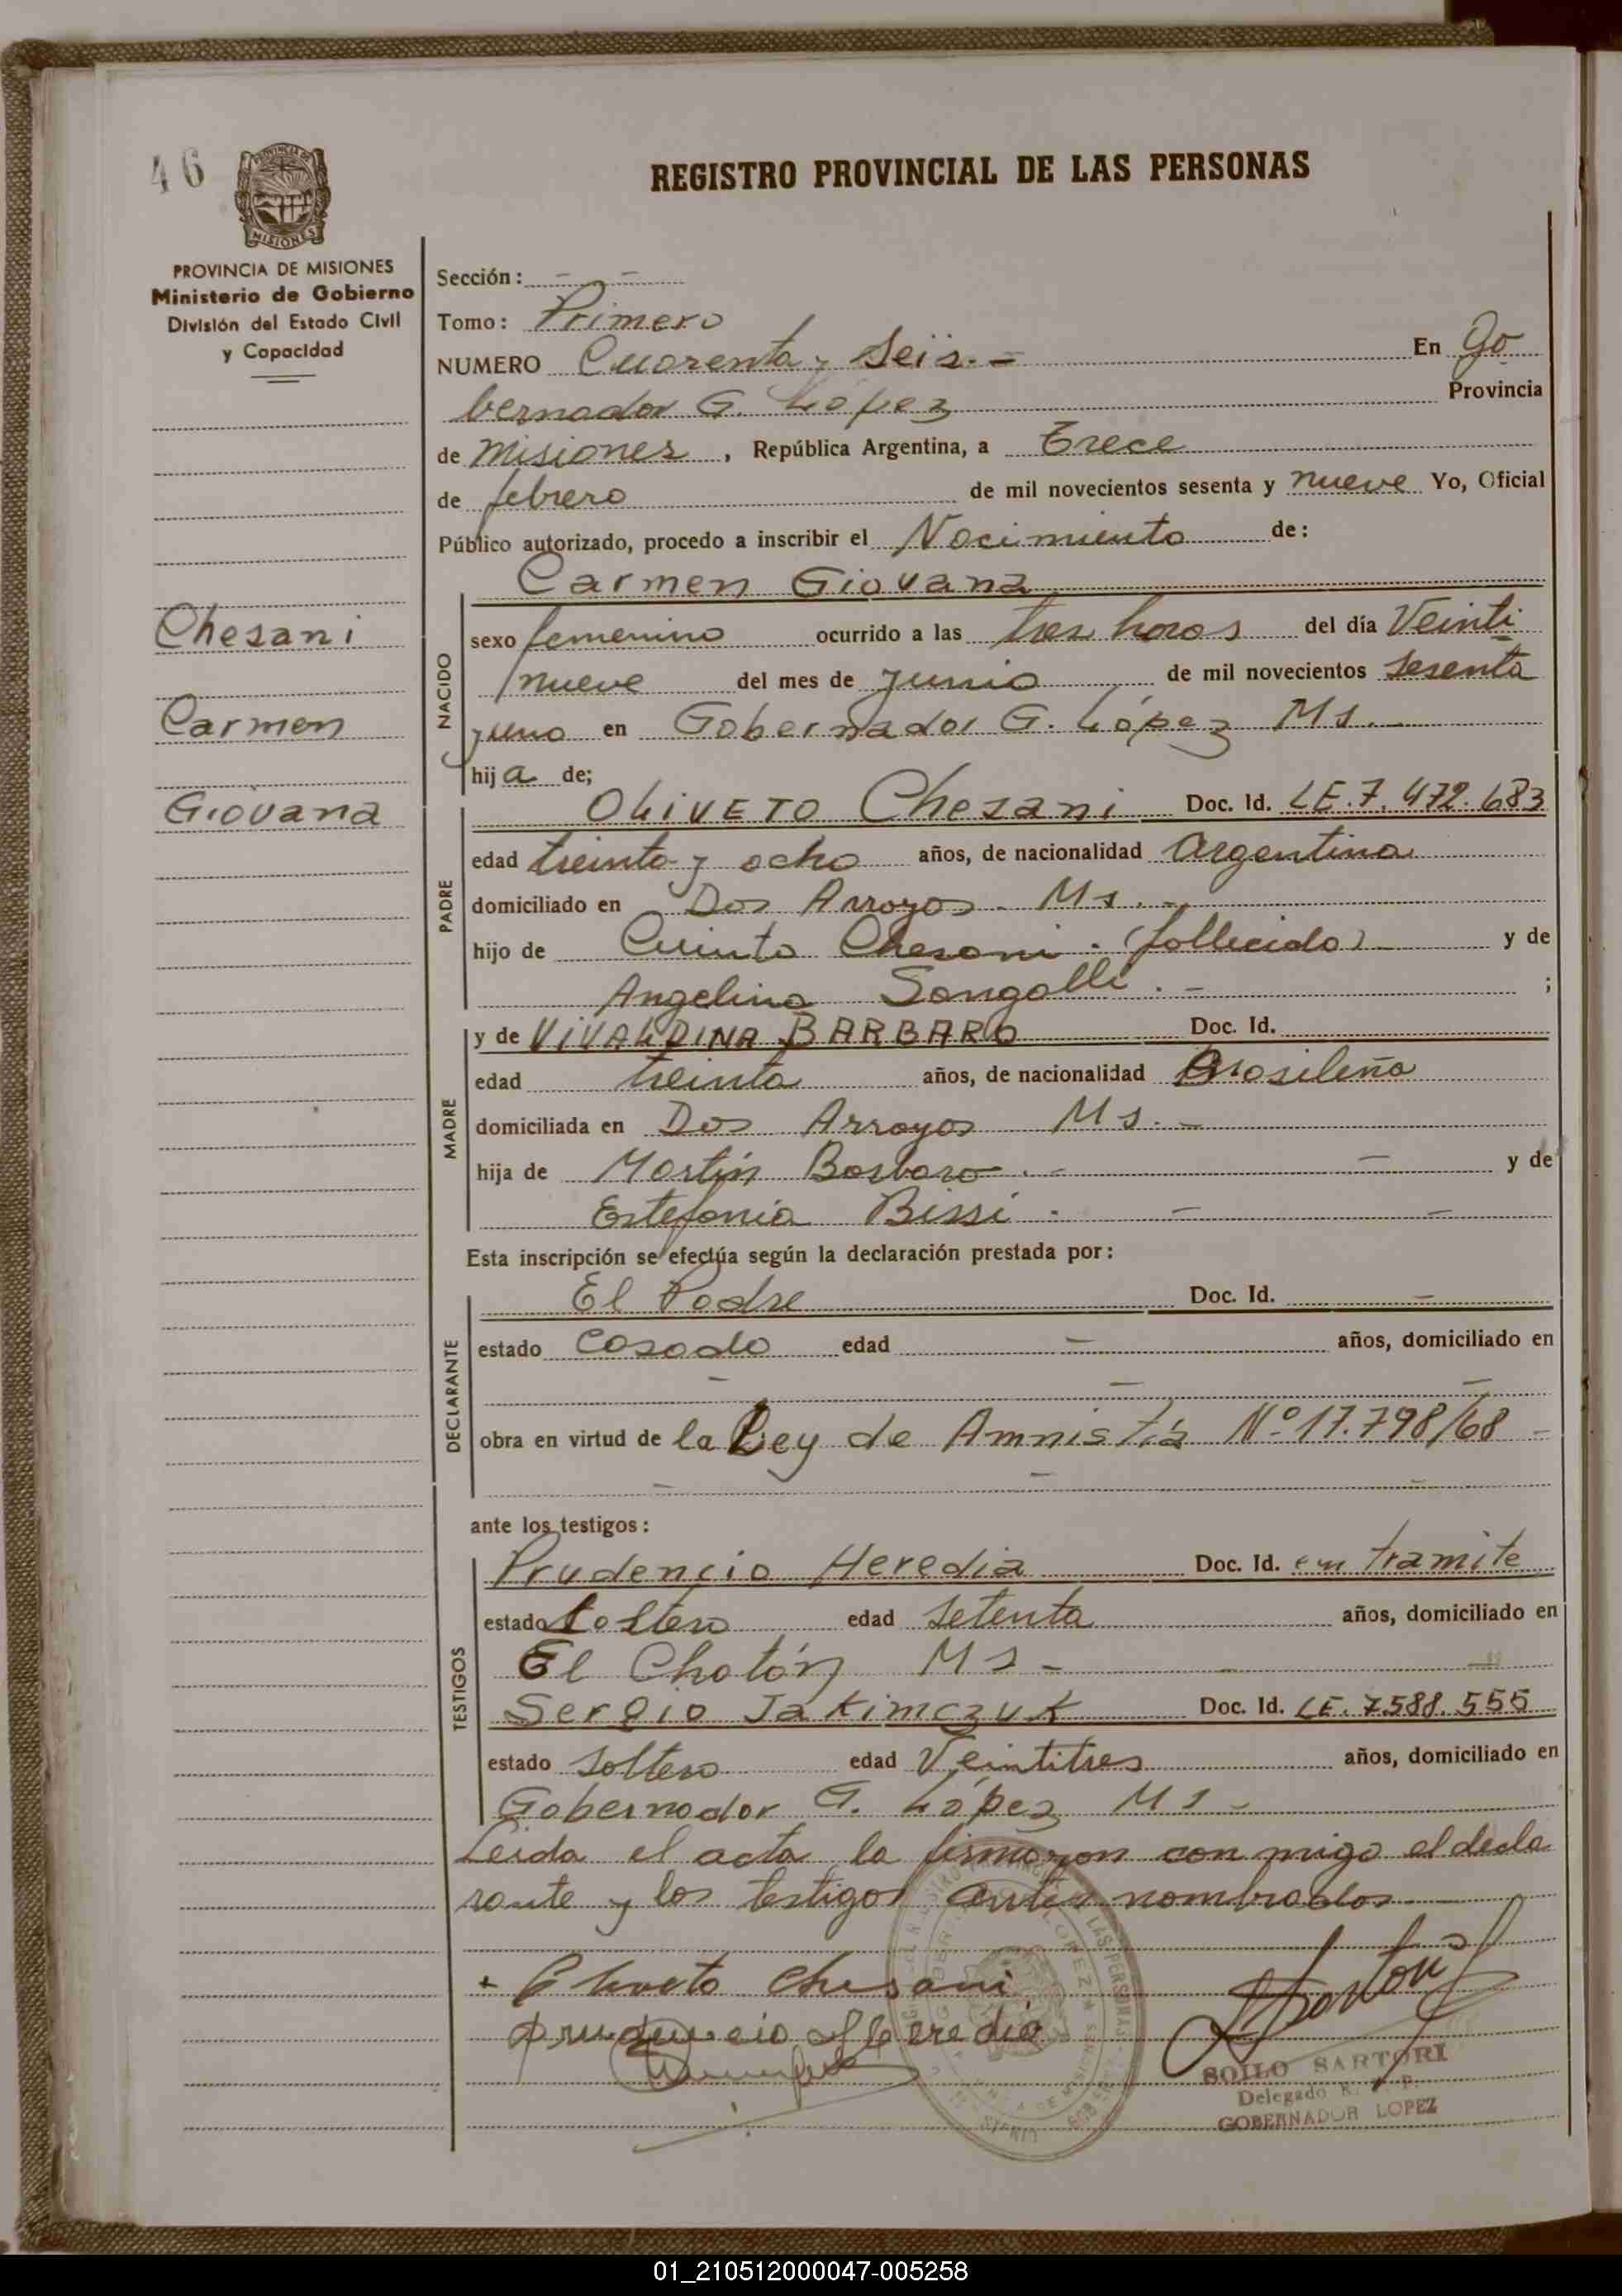 46
PROVINCIA DE
MISIONES
PROVINCIA DE MISIONES
Ministerio de Gobierno
División del Estado Civil
y Capacidad
Chesani
Carmen
Giovana
REGISTRO PROVINCIAL DE LAS PERSONAS
Sección: - -
Tomo: Primero
NUMERO Cuarenta y Seis.- En Go
bernador G. López Provincia
de Misiones, República Argentina, a Trece
de febrero de mil novecientos sesenta y nueve Yo, Oficial
Público autorizado, procedo a inscribir el Nacimiento de:
Carmen Giovana
NACIDO
sexo femenino ocurrido a las tres horas del día Veinti
nueve del mes de junio de mil novecientos sesenta
y uno en Gobernador G. López Ms.-
hija de;
PADRE
OLIVETO Chesani Doc. Id. LE.7.472.683
edad treinta y ocho años, de nacionalidad Argentina
domiciliado en Dos Arroyos. Ms.-
hijo de Cuinto Chesani.(fallecido)- y de
Angelina Sangalli.- ;
MADRE
y de VIVALDINA BARBARO Doc. Id.
edad treinta años, de nacionalidad Brasileña
domiciliada en Dos Arroyos Ms.-
hija de Martín Barbaro.- - y de
Estefania Bissi. - -
Esta inscripción se efectúa según la declaración prestada por:
DECLARANTE
El Padre Doc. Id. -
estado Casado edad - años, domiciliado en
- - -
obra en virtud de la Ley de Amnistía Nº 17.798/68 -
- - -
ante los testigos:
TESTIGOS
Prudencio Heredia Doc. Id. en tramite
estado Soltero edad setenta años, domiciliado en
El Chatón Ms - -
Sergio Jakimczuk Doc. Id. LE. 7.588.555
estado soltero edad Veintitres años, domiciliado en
Gobernador G. López Ms-
Leida el acta la firmaron con migo el decla
rante y los testigos antes nombrados
Oliveto Chesani
prudencio Heredia
SOILO SARTORI
Delegado R. P.
GOBERNADOR LOPEZ
01_210512000047-005258